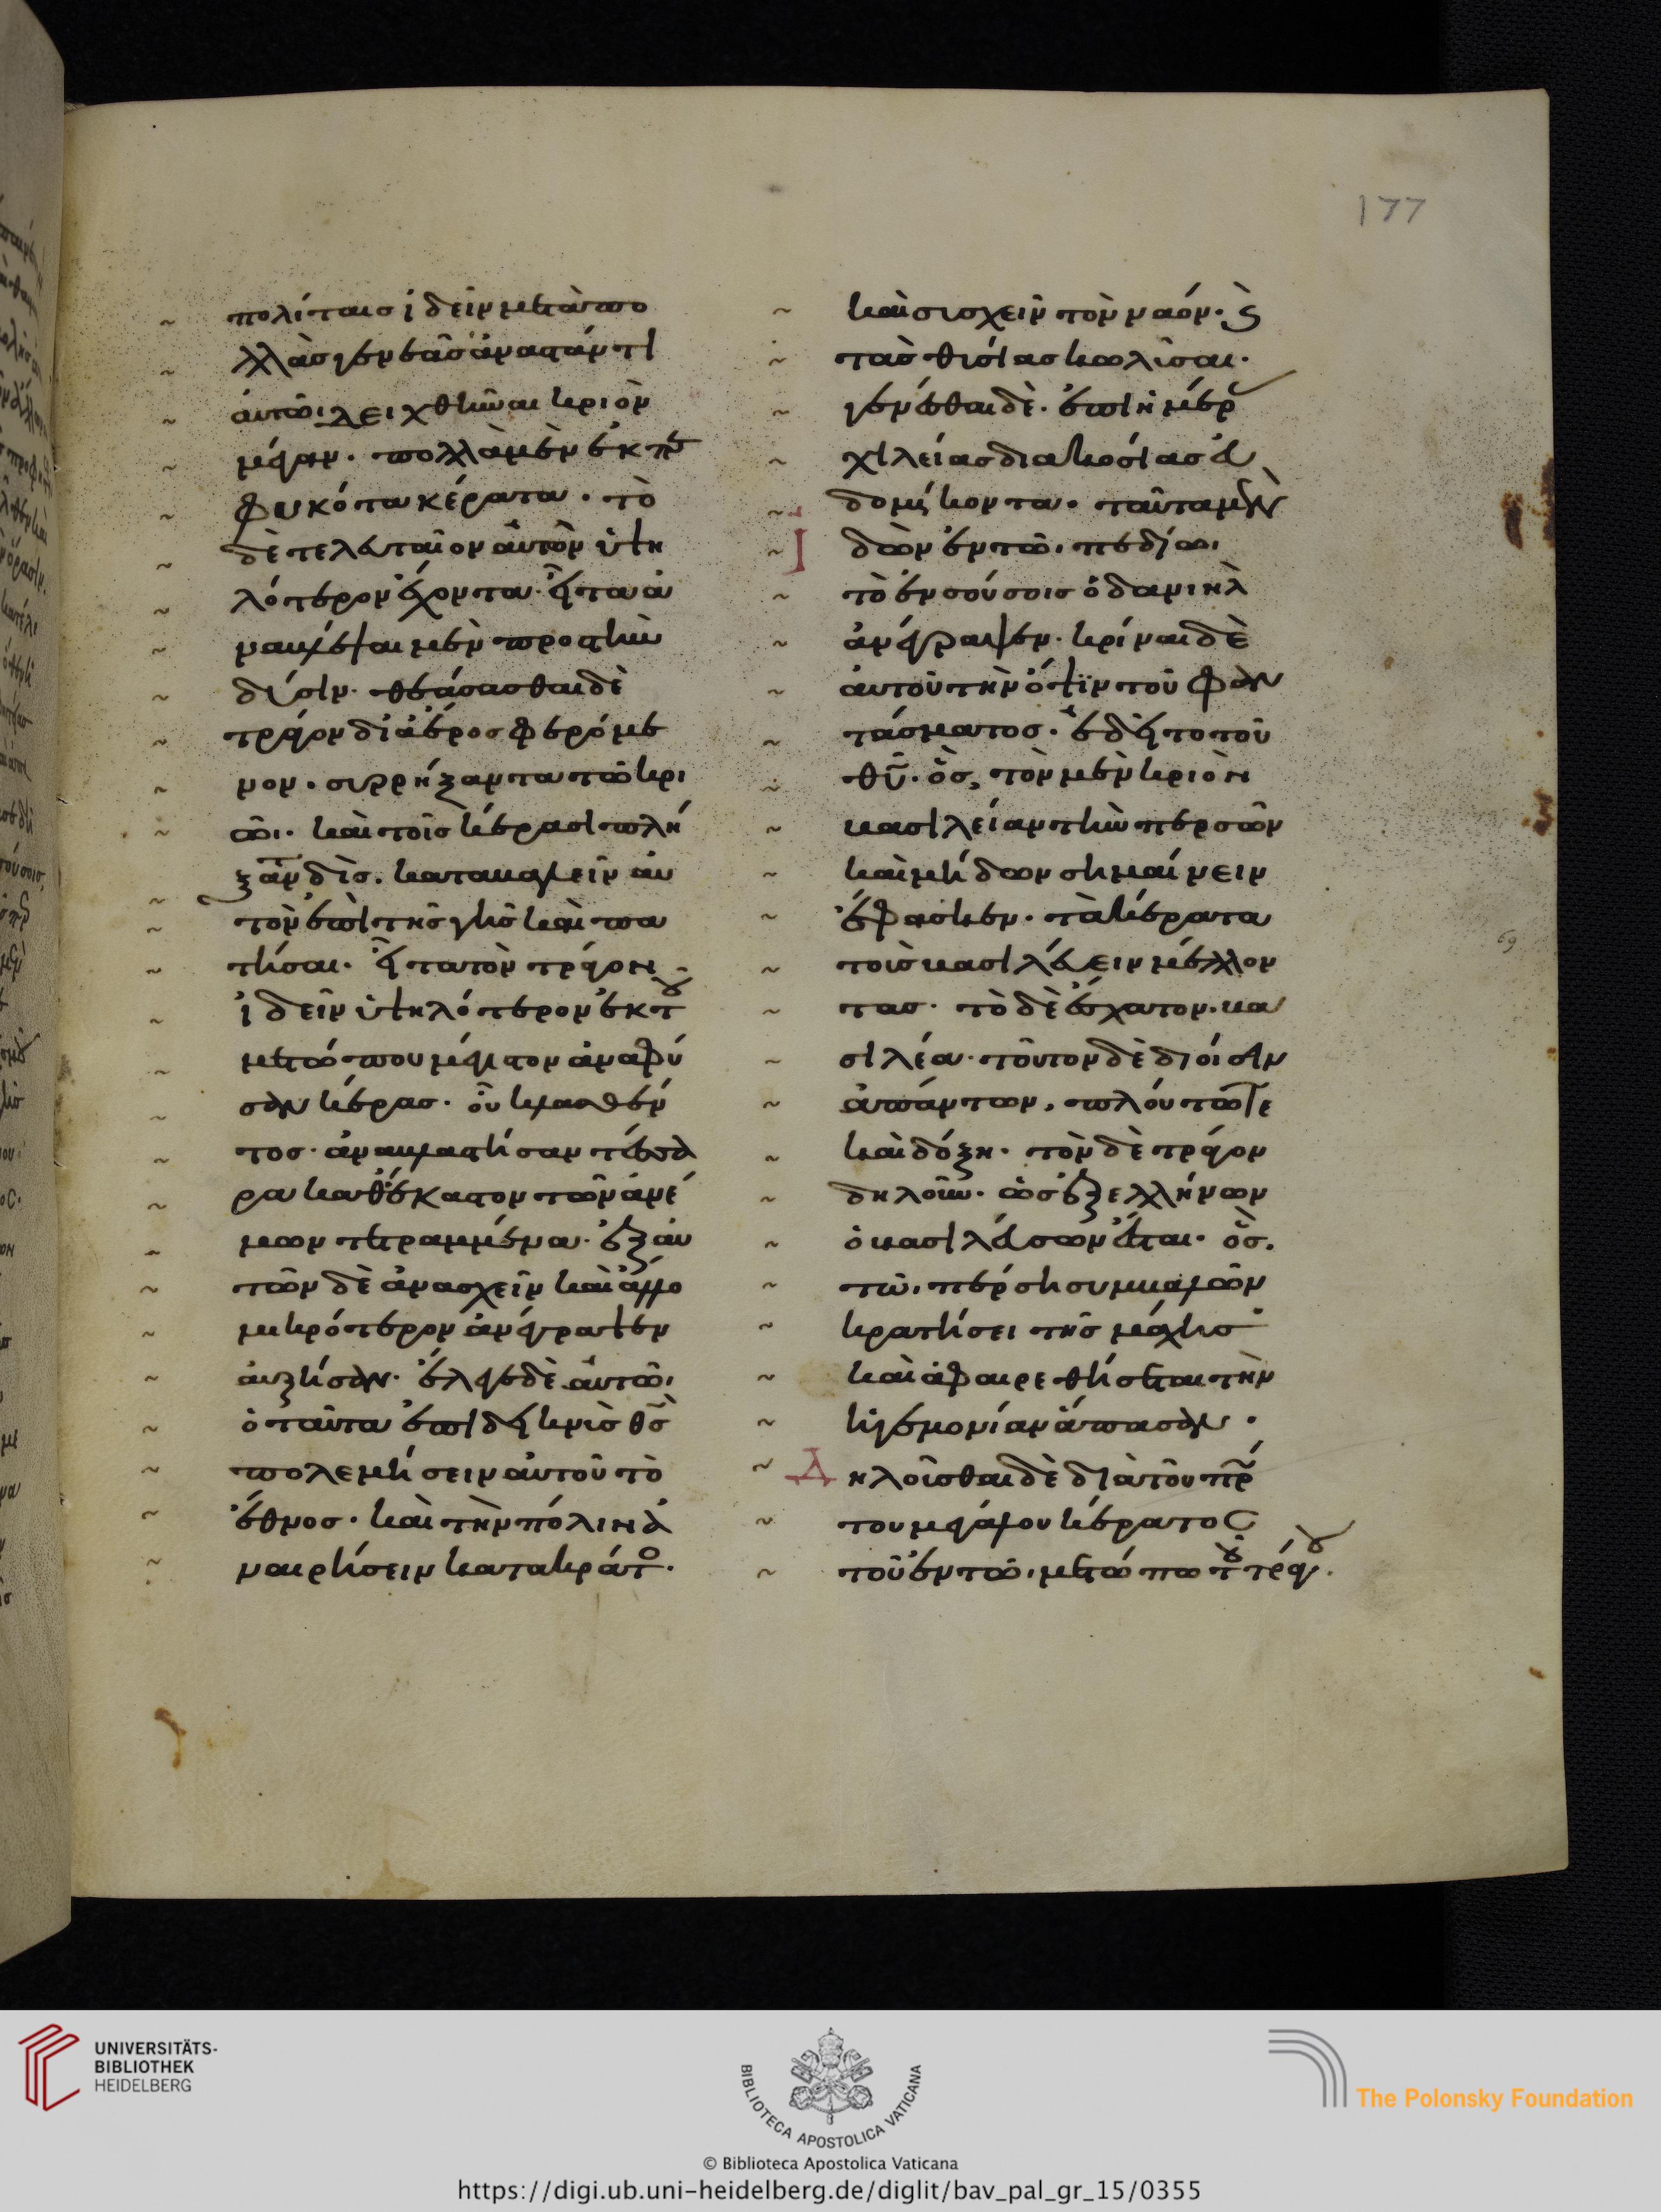 177
πολίταις ἰδεῖν μετὰ πο
λλὰς γενεὰς ἀναστάντι
αὐτῶι δειχθῆναι κριὸν
μέγαν· πολλὰ μὲν ἐκ πε
φυκότα κέρατα· τὸ
δὲ τελευταῖον αὐτὸν ὑψη
λότερον ἔχοντα· ἔπειτα ἀ
ναβλέψαι μὲν πρὸς τὴν
δύσιν· θεάσασθαι δὲ
τράγον δι' ἀέρος φερόμε
νον· συρρήξαντα τῶ κρι
ῶι· καὶ τοῖς κέρασι πλή
ξαν δίς· καταβαλεῖν αὐ
τὸν ἐπὶ τῆς γῆς καὶ πα
τῆσαι· εἶτα τὸν τράγον
ἰδεῖν ὑψηλότερον ἐκ τοῦ
μετώπου μέγιστον ἀναφύ
σαν κέρας· οὗ κλασθέν
τος· ἀναβλαστῆσαν τέσσα
ρα καθ' ἕκαστον τῶν ἀνέ
μων τετραμμένα· ἐξ αὐ
τῶν δὲ ἀνασχεῖν καὶ ἄλλο
μικρότερον ἀνέγραψεν
αὐξῆσαν· ἔλεγε δὲ αὐτῶι
ὁ ταῦτα ἐπιδεικνὺς θς
πολεμήσειν αὐτοῦ τὸ
ἔθνος· καὶ τὴν πόλιν ἀ
ναιρήσειν κατα κράτο·
καὶ συσχεῖν τὸν ναόν· καὶ
τὰς θυσίας κωλῦσαι·
γενέσθαι δὲ· ἐπὶ ἡμέρ
χιλείας διακοσίας ἐ
δομήκοντα· ταῦτα μὲν
Ἰδὼν ἐν τῶι πεδίωι
τὸ ἐν σούσοις ὁ δανιὴλ
ἀνέγραψεν· κρῖναι δὲ
αὐτοῦ τὴν ὄψιν τοῦ φαν
τάσματος· ἐδεῖτο τοῦ
θυ· ὃς, τὸν μὲν κριὸν
βασιλείαν τὴν περσῶν
καὶ μήδων σημαίνειν
ἔφασκεν· τὰ κέρατα
τοὺς βασιλεύειν μέλλον
τας· τὸ δὲ ἔσχατον· βα
σιλέα· τοῦτον δὲ διοίσειν
ἁπάντων, πλούτω τε
καὶ δόξη· τὸν δὲ τράγον
δηλοῦν· ὡς ἐξ ελλήνων
ὁ βασιλεύσων ἔσται· ὃς.
τῶι πέρση συμβαλὼν
κρατήσει τῆς μάχης
καὶ ἀφαιρεθήσεται τὴν
ἡγεμονίαν ἅπασαν·
Δηλοῦσθαι δὲ διὰ τοῦ πρ
του μεγάλου κέρατος
τοῦ ἐν τῶι μετώπω τοῦ τράγου·
69
UNIVERSITÄTS-
BIBLIOTHEK
HEIDELBERG
BIBLIOTECA APOSTOLICA VATICANA
The Polonsky Foundation
© Biblioteca Apostolica Vaticana
https://digi.ub.uni-heidelberg.de/diglit/bav_pal_gr_15/0355